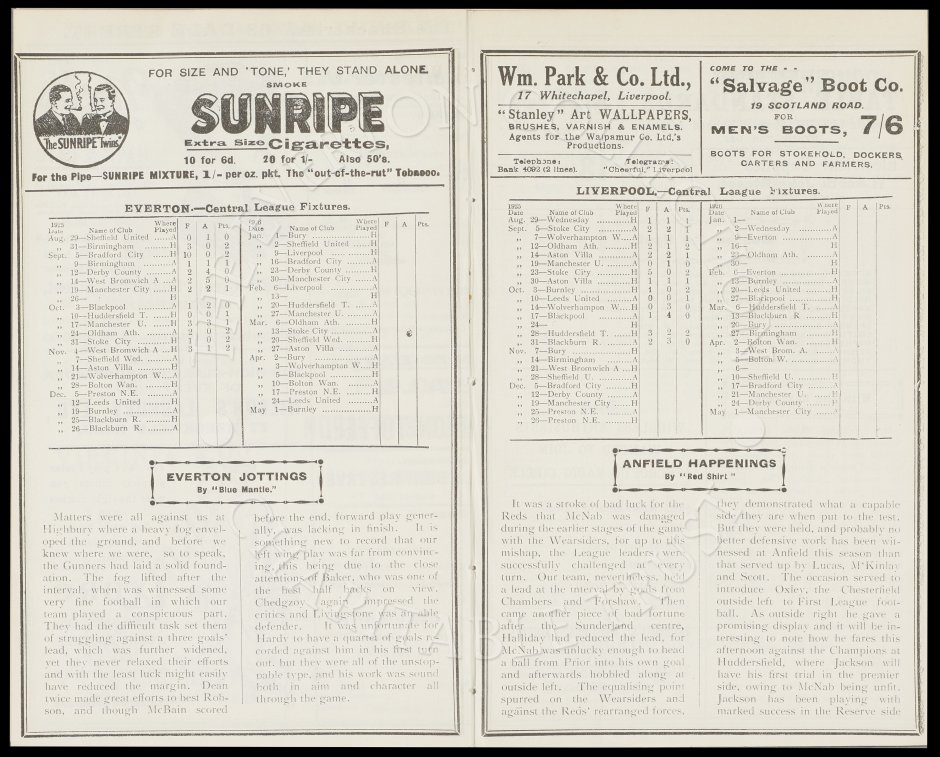 FOR SIZE AND 'TONE,' THEY STAND ALONE.
SMOKE
SUNRIPE
Extra Size Cigarettes,
The SUNRIPE Twins
10 for 6d. 20 for 1/- Also 50's.
For the Pipe—SUNRIPE MIXTURE, 1/- per oz. pkt. The "out-of-the-rut" Tobacco.
EVERTON.—Central League Fixtures.
1925 Date Name of Club Where Played F A Pts.
Aug. 29—Sheffield United ......A 0 1 0
,, 31—Birmingham ............H 3 0 2
Sept. 5—Bradford City .........H 10 0 2
,, 9—Birmingham ............A 1 1 1
,, 12—Derby County .........A 2 4 0
,, 14—West Bromwich A ...A 2 5 0
,, 19—Manchester City ......H 2 2 1
,, 26— H
Oct. 3—Blackpool ...............A 1 2 0
,, 10—Huddersfield T. ......A 0 0 1
,, 17—Manchester U. .........H 3 3 1
,, 24—Oldham Ath. .........A 2 0 2
,, 31—Stoke City ...............H 1 0 2
Nov. 4—West Bromwich A ...H 3 1 2
,, 7—Sheffield Wed. .........A
,, 14—Aston Villa ............H
,, 21—Wolverhampton W....A
,, 28—Bolton Wan. ............H
Dec. 5—Preston N.E. .........A
,, 12—Leeds United .........H
,, 19—Burnley ..................A
,, 25—Blackburn R. .........H
,, 26—Blackburn R. .........A
Date Name of Club Where Played F A Pts.
Jan. 1—Bury .....................H
,, 2—Sheffield United ......H
,, 9—Liverpool ...............H
,, 16—Bradford City .........A
,, 23—Derby County .........H
,, 30—Manchester City ......A
Feb. 6—Liverpool ...............A
,, 13— H
,, 20—Huddersfield T. ......A
,, 27—Manchester U. .........A
Mar. 6—Oldham Ath. .........H
,, 13—Stoke City ...............A
,, 20—Sheffield Wed. .........H
,, 27—Aston Villa ............A
Apr. 2—Bury .....................A
,, 3—Wolverhampton W....H
,, 5—Blackpool ...............H
,, 10—Bolton Wan. .........A
,, 17—Preston N.E. .........H
,, 24—Leeds United .........A
May 1—Burnley ..................H
EVERTON JOTTINGS
By "Blue Mantle."
Matters were all against us at
Highbury where a heavy fog envel-
oped the ground, and before we
knew where we were, so to speak,
the Gunners had laid a solid found-
ation. The fog lifted after the
interval, when was witnessed some
very fine football in which our
team played a conspicuous part.
They had the difficult task set them
of struggling against a three goals'
lead, which was further widened,
yet they never relaxed their efforts
and with the least luck might easily
have reduced the margin. Dean
twice made great efforts to best Rob-
son, and though McBain scored
before the end, forward play gener-
ally, was lacking in finish. It is
something new to record that our
left wing play was far from convinc-
ing, this being due to the close
attentions of Baker, who was one of
the best half backs on view.
Chedgzoy again impressed the
critics and Livingstone was an able
defender. It was unfortunate for
Hardy to have a quartet of goals re-
corded against him in his first two
out, but they were all of the unstop-
pable type, and his work was sound
both in aim and character all
through the game.
Wm. Park & Co. Ltd.,
17 Whitechapel, Liverpool.
"Stanley" Art WALLPAPERS,
BRUSHES, VARNISH & ENAMELS.
Agents for the Walpamur Co. Ltd,'s
Productions.
Telephone: Telegrams:
Bank 4092 (2 lines). "Cheerful," Liverpool
COME TO THE - -
"Salvage" Boot Co.
19 SCOTLAND ROAD.
FOR
MEN'S BOOTS, 7/6
BOOTS FOR STOKEHOLD, DOCKERS,
CARTERS AND FARMERS.
LIVERPOOL.—Central League Fixtures.
1925 Date Name of Club Where Played F A Pts.
Aug. 29—Wednesday ............H 1 1 1
Sept. 5—Stoke City ...............A 2 2 1
,, 7—Wolverhampton W....A 1 1 1
,, 12—Oldham Ath. .........H 2 1 2
,, 14—Aston Villa ............A 2 2 1
,, 19—Manchester U. .........A 0 1 0
,, 23—Stoke City ...............H 5 0 2
,, 30—Aston Villa ............H 1 1 1
Oct. 3—Burnley ..................H 4 0 2
,, 10—Leeds United .........A 0 0 1
,, 14—Wolverhampton W....H 0 3 0
,, 17—Blackpool ...............A 1 4 0
,, 24— H
,, 28—Huddersfield T. ......H 3 2 2
,, 31—Blackburn R. .........A 2 3 0
Nov. 7—Bury .....................H
,, 14—Birmingham ............A
,, 21—West Bromwich A ...H
,, 28—Sheffield U. ............A
Dec. 5—Bradford City .........H
,, 12—Derby County .........A
,, 19—Manchester City ......H
,, 25—Preston N.E. .........A
,, 26—Preston N.E. .........H
1926 Date Name of Club Where Played F A Pts.
Jan. 1—
,, 2—Wednesday ............A
,, 9—Everton ..................A
,, 16—
,, 23—Oldham Ath. .........A
,, 30—
Feb. 6—Everton ..................H
,, 13—Burnley ..................A
,, 20—Leeds United .........H
,, 27—Blackpool ...............H
Mar. 6—Huddersfield T. ......A
,, 13—Blackburn R. .........H
,, 20—Bury .....................A
,, 27—Birmingham ............H
Apr. 2—Bolton Wan. .........H
,, 3—West Brom. A. .........A
,, 5—Bolton W. ...............A
,, 6—
,, 10—Sheffield U. ............H
,, 17—Bradford City .........A
,, 21—Manchester U. .........H
,, 24—Derby County .........H
May 1—Manchester City ......A
ANFIELD HAPPENINGS
By "Red Shirt"
It was a stroke of bad luck for the
Reds that McNab was damaged
during the earlier stages of the game
with the Wearsiders, for up to this
mishap, the League leaders were
successfully challenged at every
turn. Our team, nevertheless, held
a lead at the interval by goals from
Chambers and Forshaw. Then
came another piece of bad fortune
after the Sunderland centre,
Halliday had reduced the lead, for
McNab was unlucky enough to head
a ball from Prior into his own goal
and afterwards hobbled along at
outside left. The equalising point
spurred on the Wearsiders and
against the Reds' rearranged forces,
they demonstrated what a capable
side they are when put to the test.
But they were held, and probably no
better defensive work has been wit-
nessed at Anfield this season than
that served up by Lucas, McKinlay
and Scott. The occasion served to
introduce Oxley, the Chesterfield
outside left to First League foot-
ball. As outside right he gave a
promising display and it will be in-
teresting to note how he fares this
afternoon against the Champions at
Huddersfield, where Jackson will
have his first trial in the premier
side, owing to McNab being unfit.
Jackson has been playing with
marked success in the Reserve side